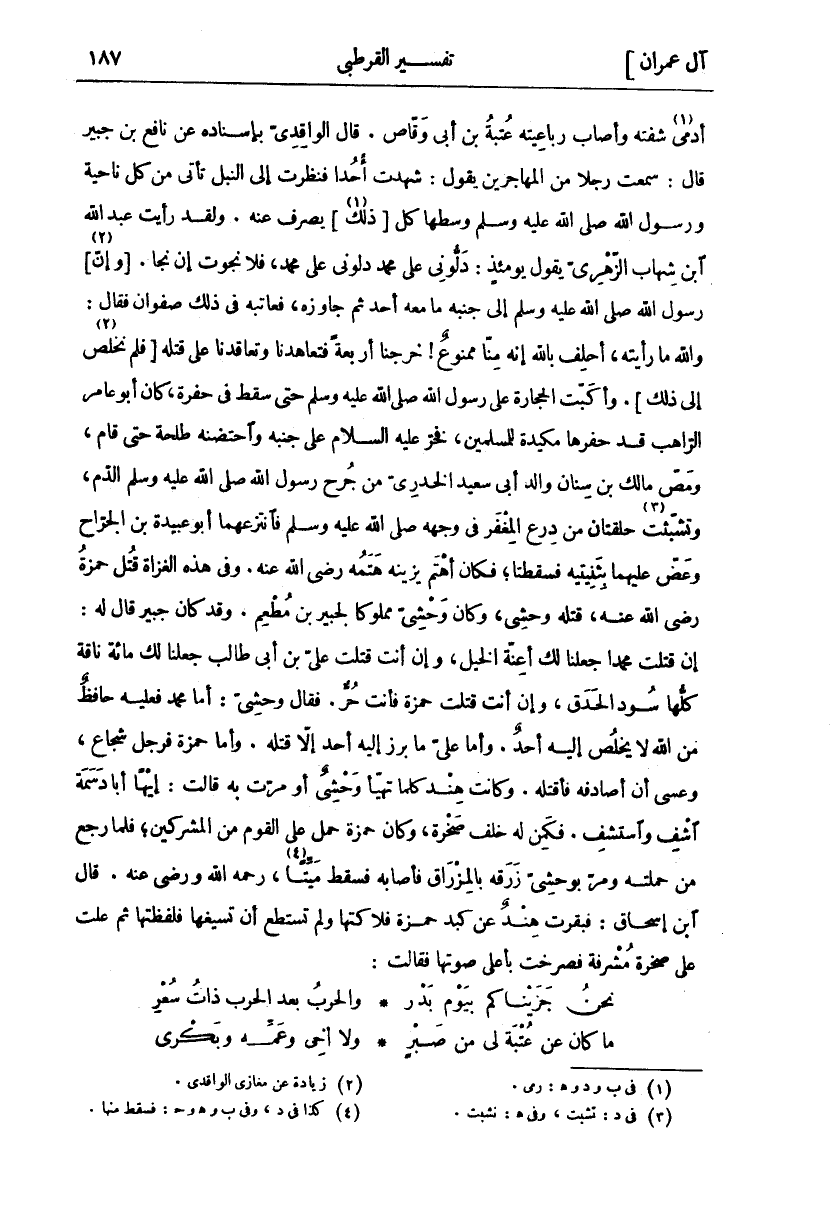 آل عمران ] تفسير القرطبى ١٨٧
أدمى (١) شفته وأصاب رباعيته عُتبةُ بن أبى وَقّاص . قال الواقدِىّ بإسناده عن نافع بن جبير
قال : سمعت رجلا من المهاجرين يقول : شهدت أُحُدا فنظرت إلى النبل تأتى من كل ناحية
ورسول الله صلى الله عليه وسلم وسطها كل [ ذلك (١) ] يصرف عنه . ولقد رأيت عبد الله
ٱبن شِهاب الزّهْرِىّ يقول يومئذٍ : دَلُّونِى على محمد دلونى على محمد، فلا نجوت إن نجا . [ وإنّ (٢) ]
رسول الله صلى الله عليه وسلم إلى جنبه ما معه أحد ثم جاوزه، فعاتبه فى ذلك صفوان فقال :
والله ما رأيته، أحلِف بالله إنه مِنّا ممنوعٌ ! خرجنا أربعةً فتعاهدنا وتعاقدنا على قتله [ فلم نخلص (٢)
إلى ذلك ] . وأكَبّت الحجارة على رسول الله صلى الله عليه وسلم حتى سقط فى حفرة، كان أبو عامر
الرّاهب قد حفرها مكيدة للمسلمين، فخرّ عليه السلام على جنبه وٱحتضنه طلحة حتى قام ،
ومَصّ مالك بن سِنان والد أبى سعيد الخدرِىّ من جُرح رسول الله صلى الله عليه وسلم الدّم،
وتشبّثت (٣) حلقتان من دِرع المِغْفَر فى وجهه صلى الله عليه وسلم فٱنتزعهما أبو عبيدة بن الجرّاح
وعَضّ عليهما بِثَنِيتيه فسقطتا؛ فكان أهْتَم يزينه هَتَمُه رضى الله عنه . وفى هذه الغزاة قُتل حمزةُ
رضى الله عنه، قتله وحشِى، وكان وَحْشِىّ مملوكا لجبير بن مُطْعِم . وقد كان جبير قال له :
إن قتلت محمدا جعلنا لك أعِنّة الخيل، وإن أنت قتلت علىّ بن أبى طالب جعلنا لك مائة ناقة
كلُّها سُود الحَدَق ، وإن أنت قتلت حمزة فأنت حُرٌّ. فقال وحشِىّ : أما محمد فعليه حافظٌ
من الله لا يخلُص إليه أحدٌ . وأما علىّ ما برز إليه أحد إلّا قتله . وأما حمزة فرجل شجاع ،
وعسى أن أصادفه فأقتله . وكانت هِنْد كلما تهيّأ وَحْشِىٌّ أو مرّت به قالت : إيْهًا أبا دَسَمَة
ٱشْفِ وٱستشفِ . فكَمِن له خلف صَخْرة، وكان حمزة حمل على القوم من المشركين؛ فلما رجع
من حملته ومرّ بوحشِىّ زَرَقه بالمِزْرَاق فأصابه فسقط مَيّتًا (٤) ، رحمه الله ورضى عنه . قال
ٱبن إسحاق : فبقرت هِنْدٌ عن كبد حمزة فلاكتها ولم تستطع أن تسيغها فلفظتها ثم علت
على صخرة مُشْرفة فصرخت بأعلى صوتها فقالت :
نحنُ جَزَيْناكم بيَوْم بَدْر * والحربُ بعد الحرب ذاتُ سُعْرِ
ما كان عن عُتْبَة لى من صَبْرِ * ولا أخِى وعَمِّه وبَكْرى
(١) فى ب و د و ه : رمى . (٢) زيادة عن مغازى الواقدى .
(٣) فى د : تشبت ، وفى ه : نشبت . (٤) كذا فى د ، وفى ب و ه و ح : فسقط منها .